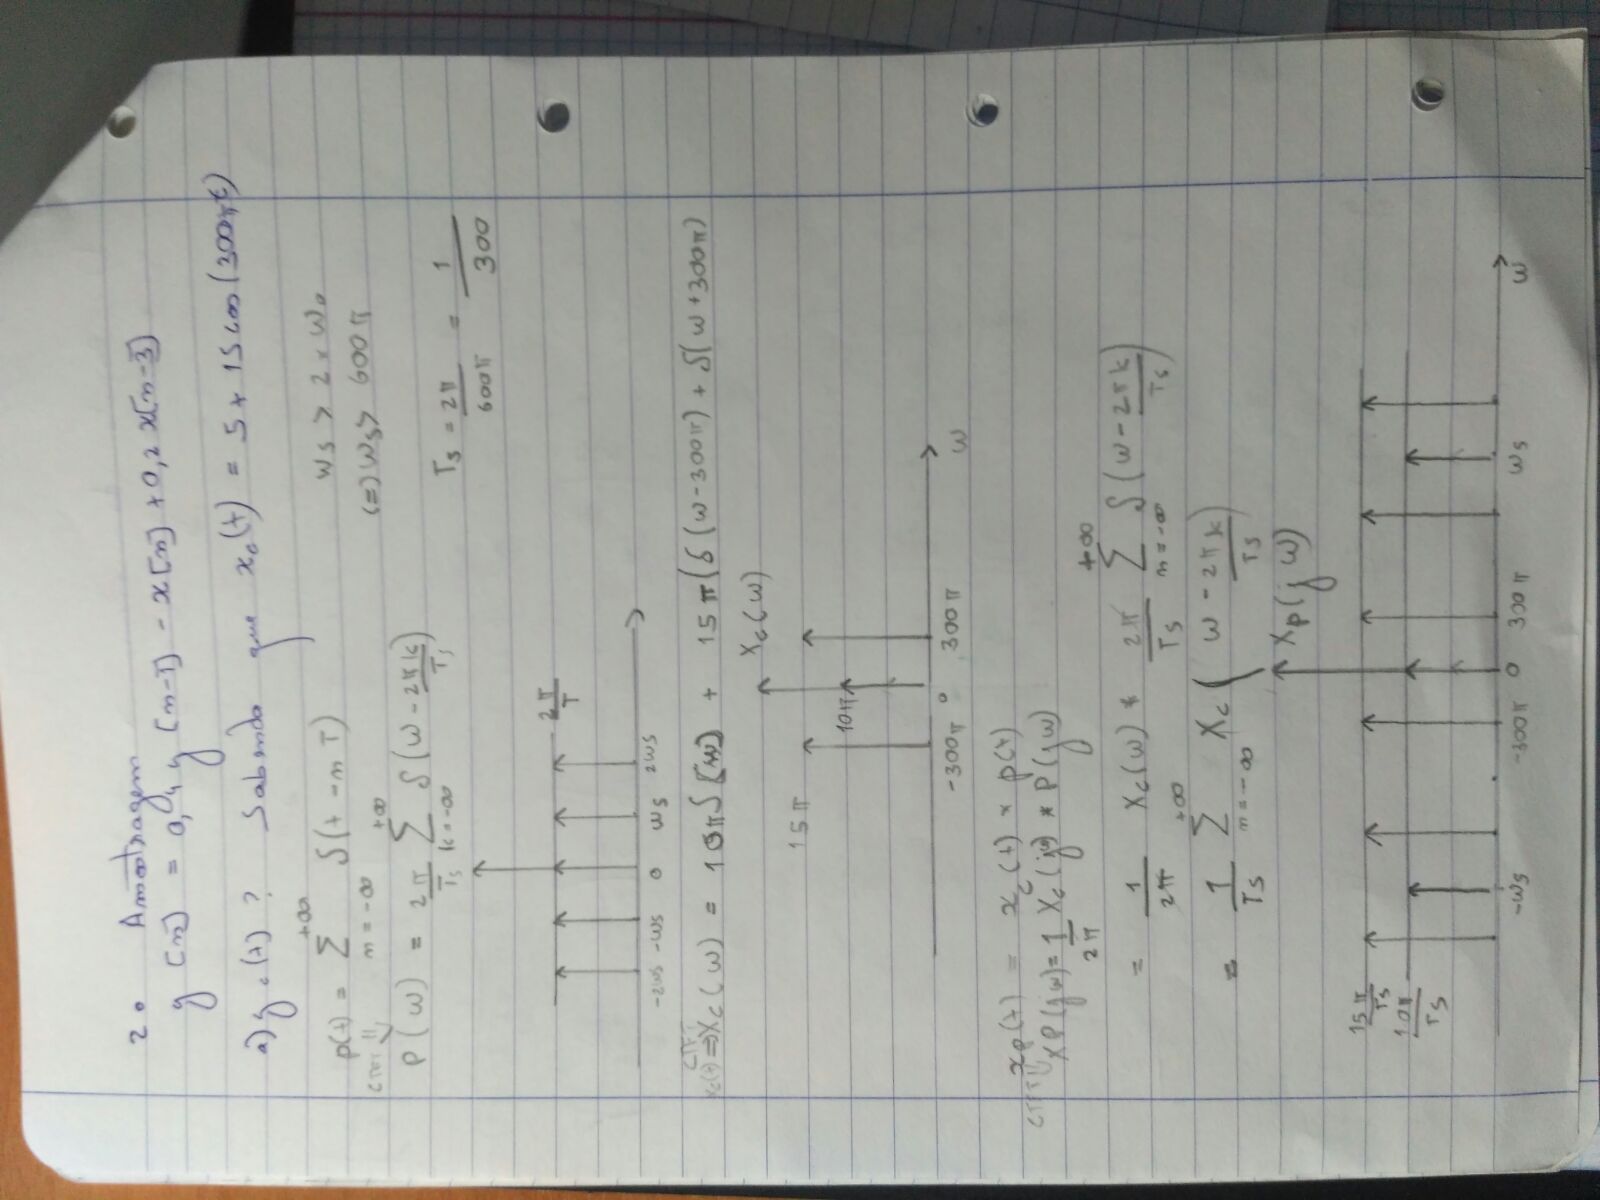 2. Amostragem
y[n] = 0,4 y[n-1] - x[n] + 0,2 x[n-3]
a) yc(t)? Sabendo que xc(t) = 5 + 15 cos(300πt)
p(t) = +∞ Σ n=-∞ δ(t-nT)
ws > 2 × wo
CTFT
(=) ws > 600π
P(w) = 2π/Ts +∞ Σ k=-∞ δ(w - 2πk/Ts)
Ts = 2π/600π = 1/300
2π/T
-2ws -ws 0 ws 2ws
xc(t) => Xc(w) = 10π δ(w) + 15π(δ(w-300π) + δ(w+300π)
Xc(w)
15π
10π
-300π 0 300π w
xp(t) = xc(t) × p(t)
CTFT
XP(jw) = 1/2π Xc(jw) * P(jw)
= 1/2π Xc(w) * 2π/Ts +∞ Σ n=-∞ δ(w - 2πk/Ts)
= 1/Ts +∞ Σ n=-∞ Xc(w - 2πk/Ts)
Xp(jw)
15π/Ts
10π/Ts
-ws -300π 0 300π ws w